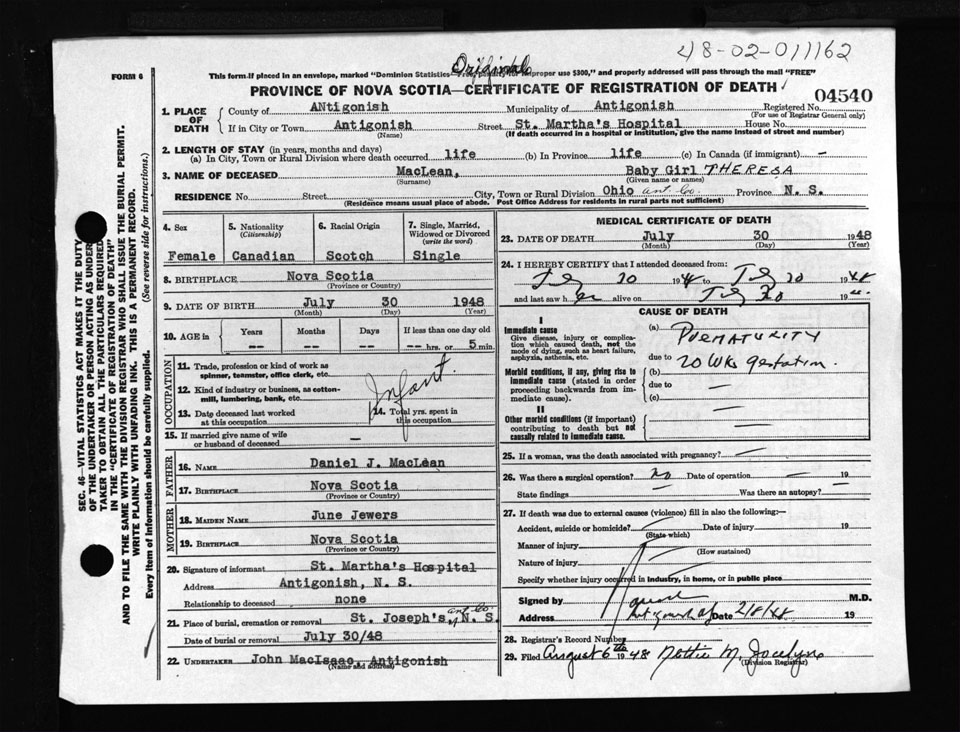 48-02-011162
Original
FORM 6
This form if placed in an envelope, marked "Dominion Statistics— Free, penalty for improper use $300," and properly addressed will pass through the mail "FREE"
PROVINCE OF NOVA SCOTIA—CERTIFICATE OF REGISTRATION OF DEATH
04540
1. PLACE OF DEATH
County of ANtigonish Municipality of Antigonish Registered No.
(For use of Registrar General only)
If in City or Town Antigonish Street St. Martha's Hospital House No.
(Name) (If death occurred in a hospital or institution, give the name instead of street and number)
2. LENGTH OF STAY (in years, months and days)
(a) In City, Town or Rural Division where death occurred life (b) In Province life (c) In Canada (if immigrant) -
3. NAME OF DECEASED MacLean, Baby Girl THERESA
(Surname) (Given name or names)
RESIDENCE No. Street City, Town or Rural Division Ohio ant. Co. Province N. S.
(Residence means usual place of abode. Post Office Address for residents in rural parts not sufficient)
4. Sex 5. Nationality (Citizenship) 6. Racial Origin 7. Single, Married, Widowed or Divorced (write the word)
Female Canadian Scotch Single
8. BIRTHPLACE Nova Scotia
(Province or Country)
9. DATE OF BIRTH July 30 1948
(Month) (Day) (Year)
10. AGE in Years Months Days If less than one day old
-- -- -- -- hrs. or 5 min.
OCCUPATION
11. Trade, profession or kind of work as spinner, teamster, office clerk, etc.
12. Kind of industry or business, as cotton-mill, lumbering, bank, etc.
Infant.
13. Date deceased last worked at this occupation
14. Total yrs. spent in this occupation
15. If married give name of wife or husband of deceased -
FATHER
16. NAME Daniel J. MacLean
17. BIRTHPLACE Nova Scotia
(Province or Country)
MOTHER
18. MAIDEN NAME June Jewers
19. BIRTHPLACE Nova Scotia
(Province or Country)
20. Signature of informant St. Martha's Hospital
Address Antigonish, N. S.
Relationship to deceased none
21. Place of burial, cremation or removal St. Joseph's, ant. Co. N. S.
Date of burial or removal July 30/48
22. UNDERTAKER John MacIsaac, Antigonish
(Name and address)
MEDICAL CERTIFICATE OF DEATH
23. DATE OF DEATH July 30 1948
(Month) (Day) (Year)
24. I HEREBY CERTIFY that I attended deceased from:
July 30 1948 to July 30 1948
and last saw her alive on July 30 19
CAUSE OF DEATH
I
Immediate cause
Give disease, injury or complication which caused death, not the mode of dying, such as heart failure, asphyxia, asthenia, etc.
(a) PREMATURITY
due to
Morbid conditions, if any, giving rise to immediate cause (stated in order proceeding backwards from immediate cause).
(b) 20 WKs gestation.
due to —
(c) —
II
Other morbid conditions (if important) contributing to death but not causally related to immediate cause. —
25. If a woman, was the death associated with pregnancy? —
26. Was there a surgical operation? no Date of operation — 19
State findings Was there an autopsy? -
27. If death was due to external causes (violence) fill in also the following:—
Accident, suicide or homicide? Date of injury 19
(State which)
Manner of injury
(How sustained)
Nature of injury
Specify whether injury occurred in industry, in home, or in public place
Signed by M.D.
Address Date 2/8/48 19
28. Registrar's Record Number
29. Filed August 6th 1948 Nettie M. Jocelyn
(Division Registrar)
SEC. 46—VITAL STATISTICS ACT MAKES IT THE DUTY
OF THE UNDERTAKER OR PERSON ACTING AS UNDER
TAKER TO OBTAIN ALL THE PARTICULARS REQUIRED
IN THE "CERTIFICATE OF REGISTRATION OF DEATH"
AND TO FILE THE SAME WITH THE DIVISION REGISTRAR WHO SHALL ISSUE THE BURIAL PERMIT.
WRITE PLAINLY WITH UNFADING INK. THIS IS A PERMANENT RECORD.
Every item of information should be carefully supplied. (See reverse side for instructions.)